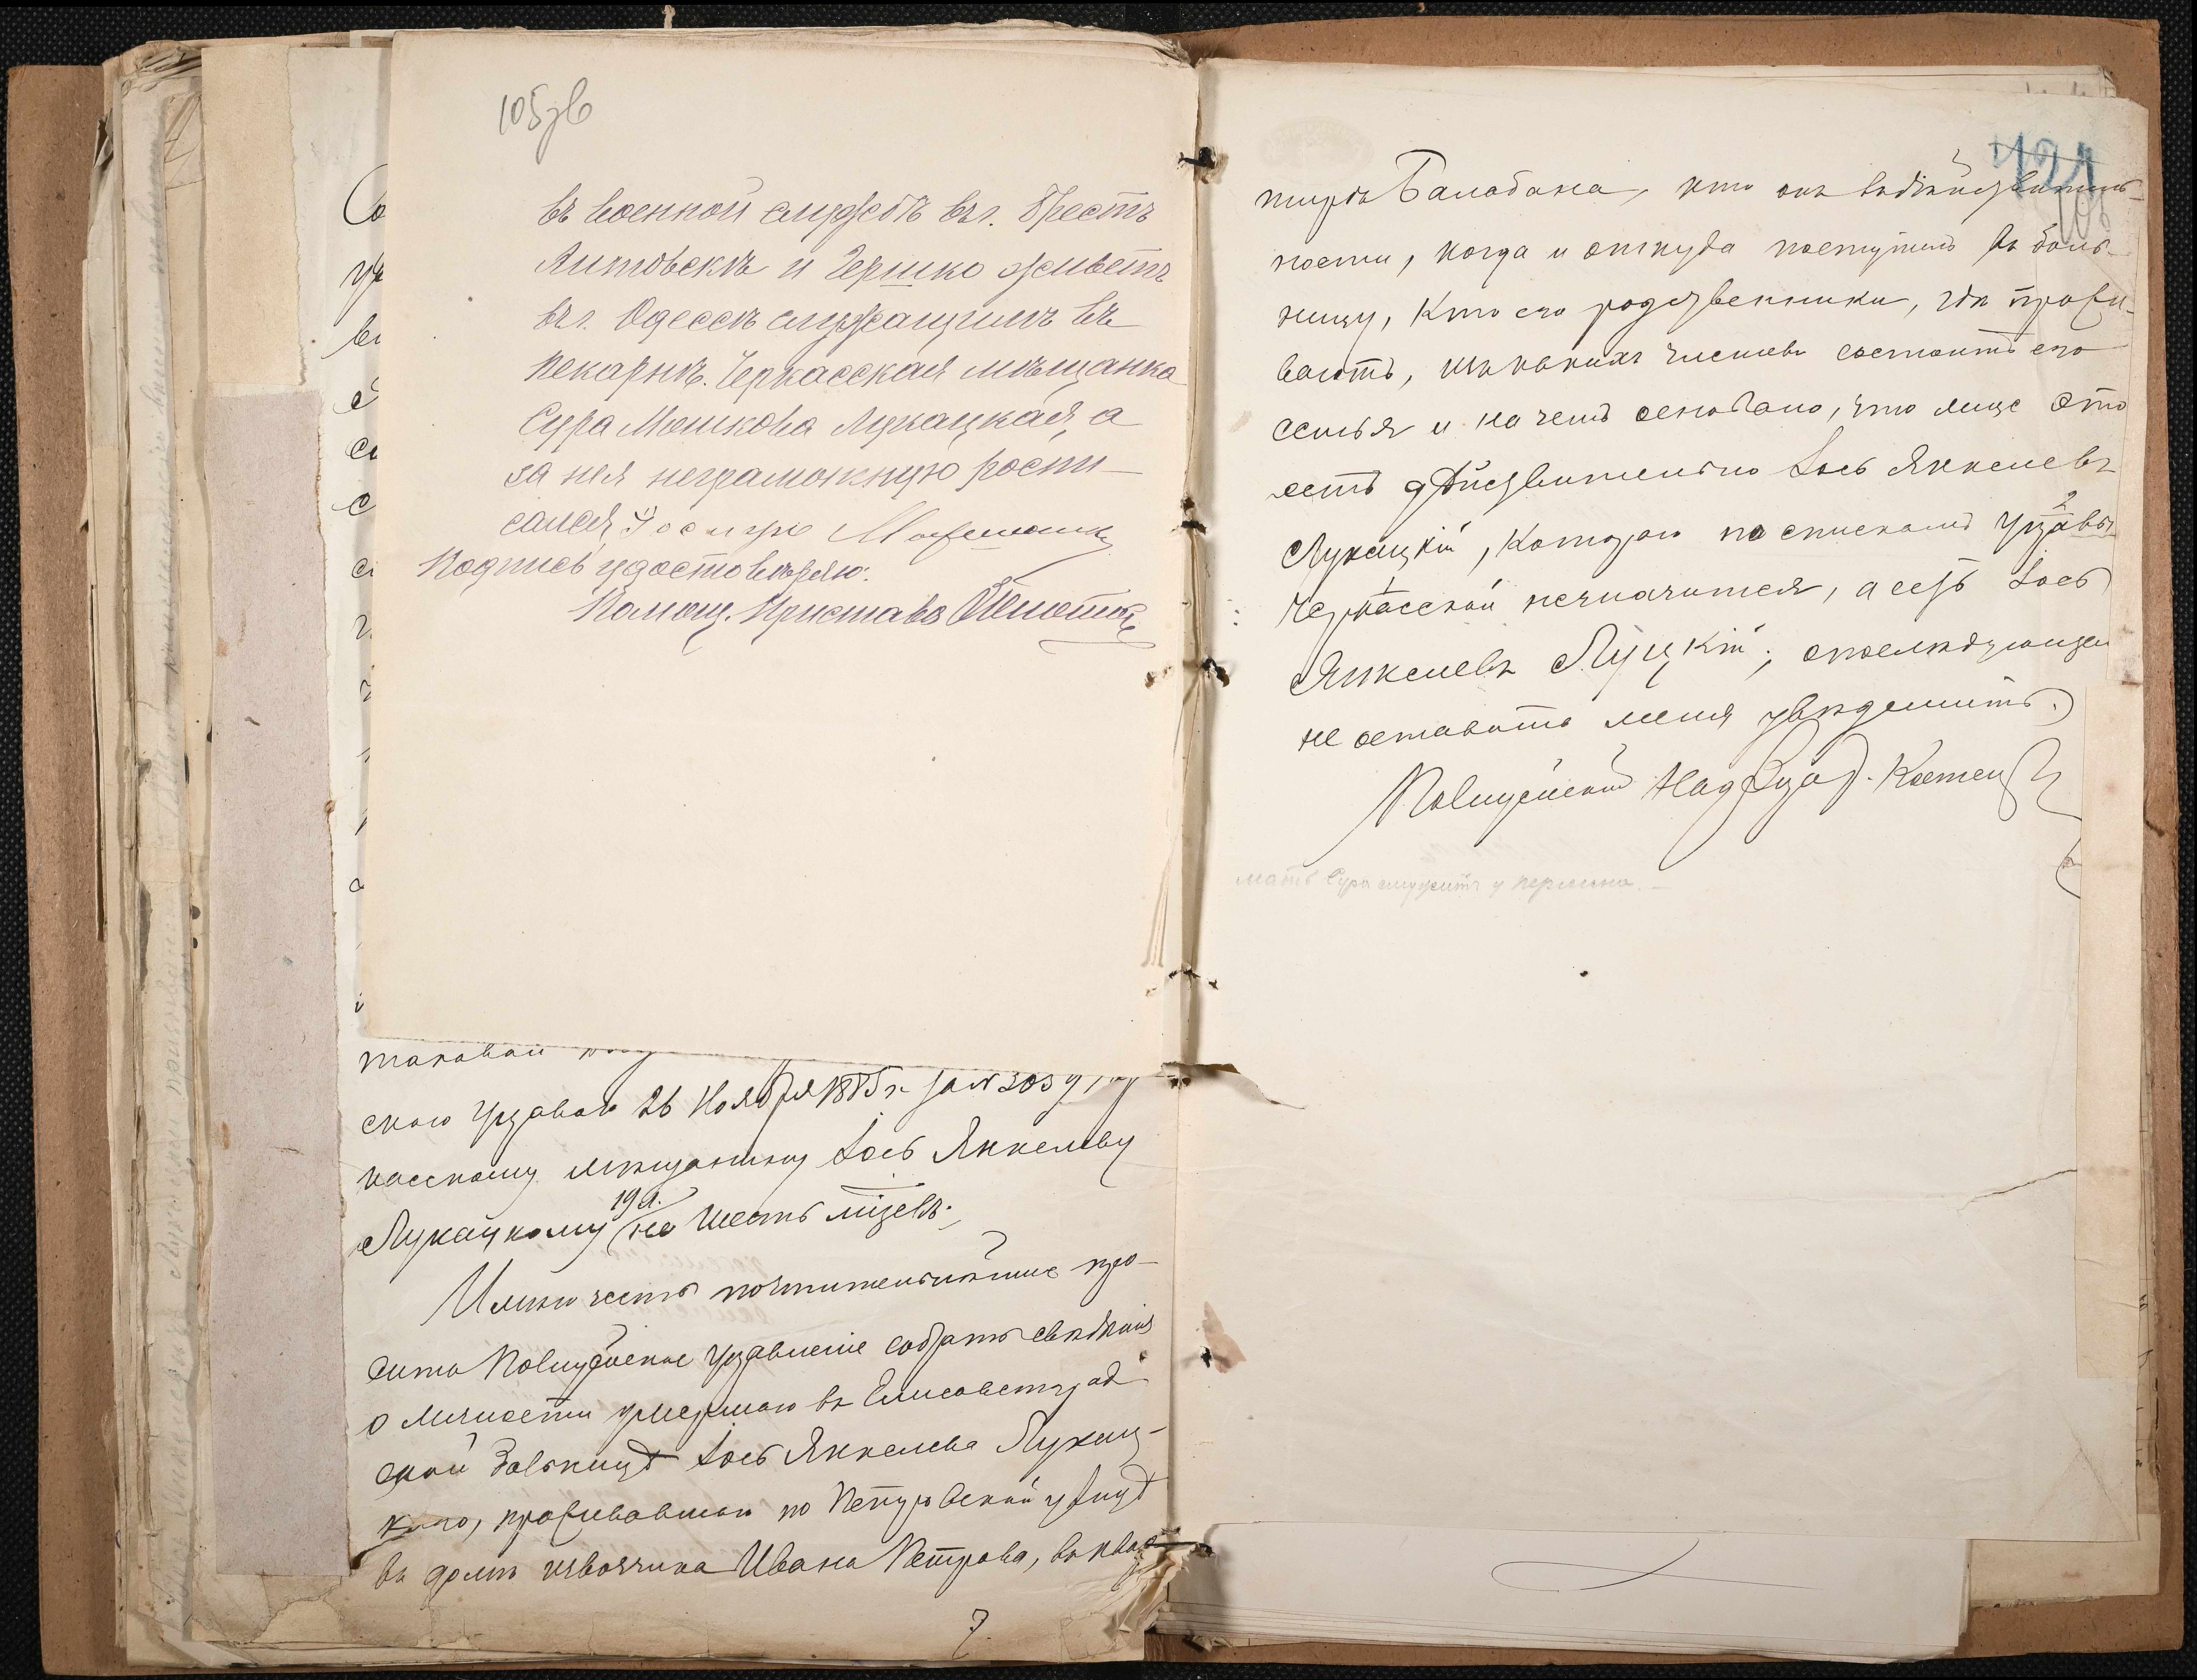 105зв
въ военной службѣ въ г. Брестъ
Литовскѣ и Гершко живетъ
въ г. Одессѣ служащимъ въ
пекарнѣ. Черкасская мѣщанка
Сура Мошкова Лукацкая, а
за нея неграмотную роспи-
сался
Подпись удостовѣряю:
Помощ. Пристава
таковой
скою Управою 26 Ноября 1885 г. за №
касскому мѣщанину Іось Янкелеву
19 л.
Лукацкому на шесть мѣсцевъ.
Имѣю честь почтительнѣйше про-
сить Полицейское Управленіе собрать свѣдѣнія
о личности умершаго въ Елисаветград-
ской больницѣ Іось Янкелева Лукац-
каго, проживавшаго по Петровской улицѣ
въ домѣ извозчика Ивана Петрова, въ квар-
7.
421
тирѣ Балабана, кто онъ въ дѣйствитель-
ности, когда и откуда поступилъ въ боль-
ницу, кто его родственники, гдѣ прожи-
ваютъ, изъ какихъ членовъ состоитъ его
семья и на чемъ основано, что лице это
есть дѣйствительно Іось Янкелевъ
Лукацкій, котораго по спискамъ Управы
2
Черкасской не значится, а есть Іось
Янкелевъ Луцкій; о послѣдующемъ
не оставить меня увѣдомить.
Полицейскій Надзират.
мать Сура служитъ у